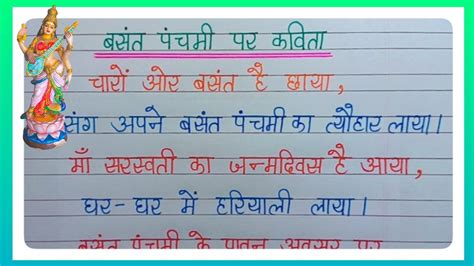 बसंत पंचमी पर कविता
चारों ओर बसंत है छाया,
संग अपने बसंत पंचमी का त्यौहार लाया।
माँ सरस्वती का जन्मदिवस है आया,
घर-घर में हरियाली लाया।
बसंत पंचमी के पावन अवसर पर